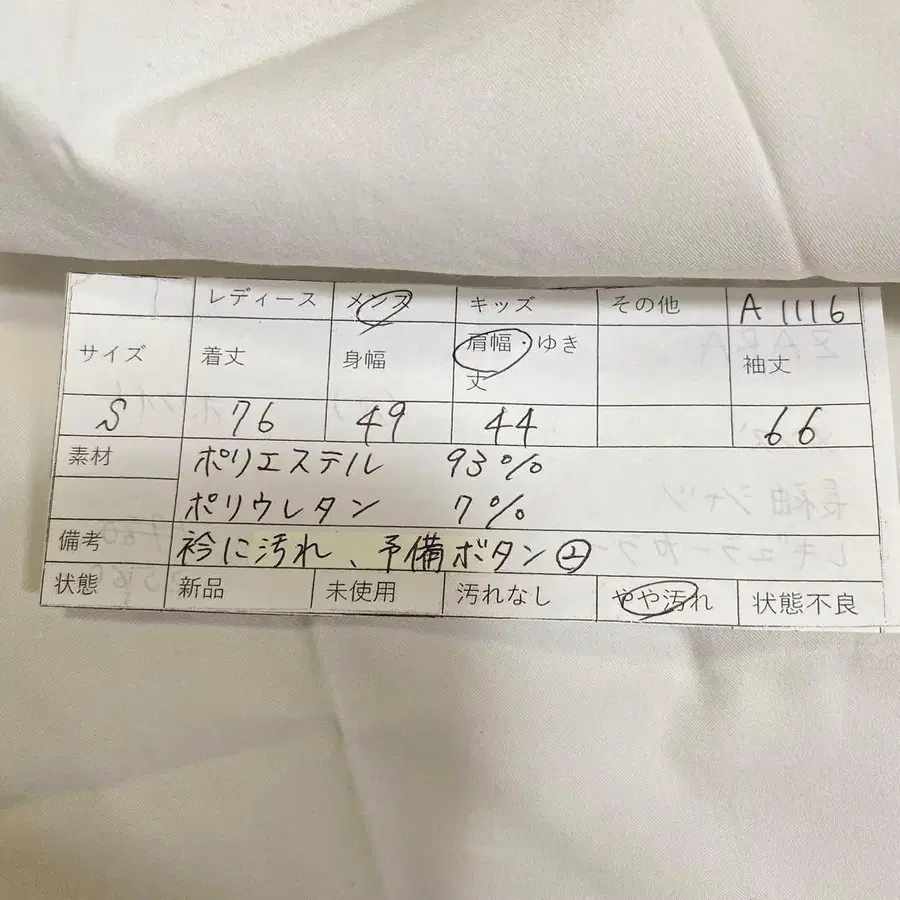 レディース メンズ キッズ その他 A 1116
サイズ 着丈 身幅 肩幅・ゆき丈 袖丈
S 76 49 44 66
素材 ポリエステル 93%
ポリウレタン 7%
備考 衿に汚れ、予備ボタン②
状態 新品 未使用 汚れなし やや汚れ 状態不良
ZARA
長袖シャツ
レギュラーカラー